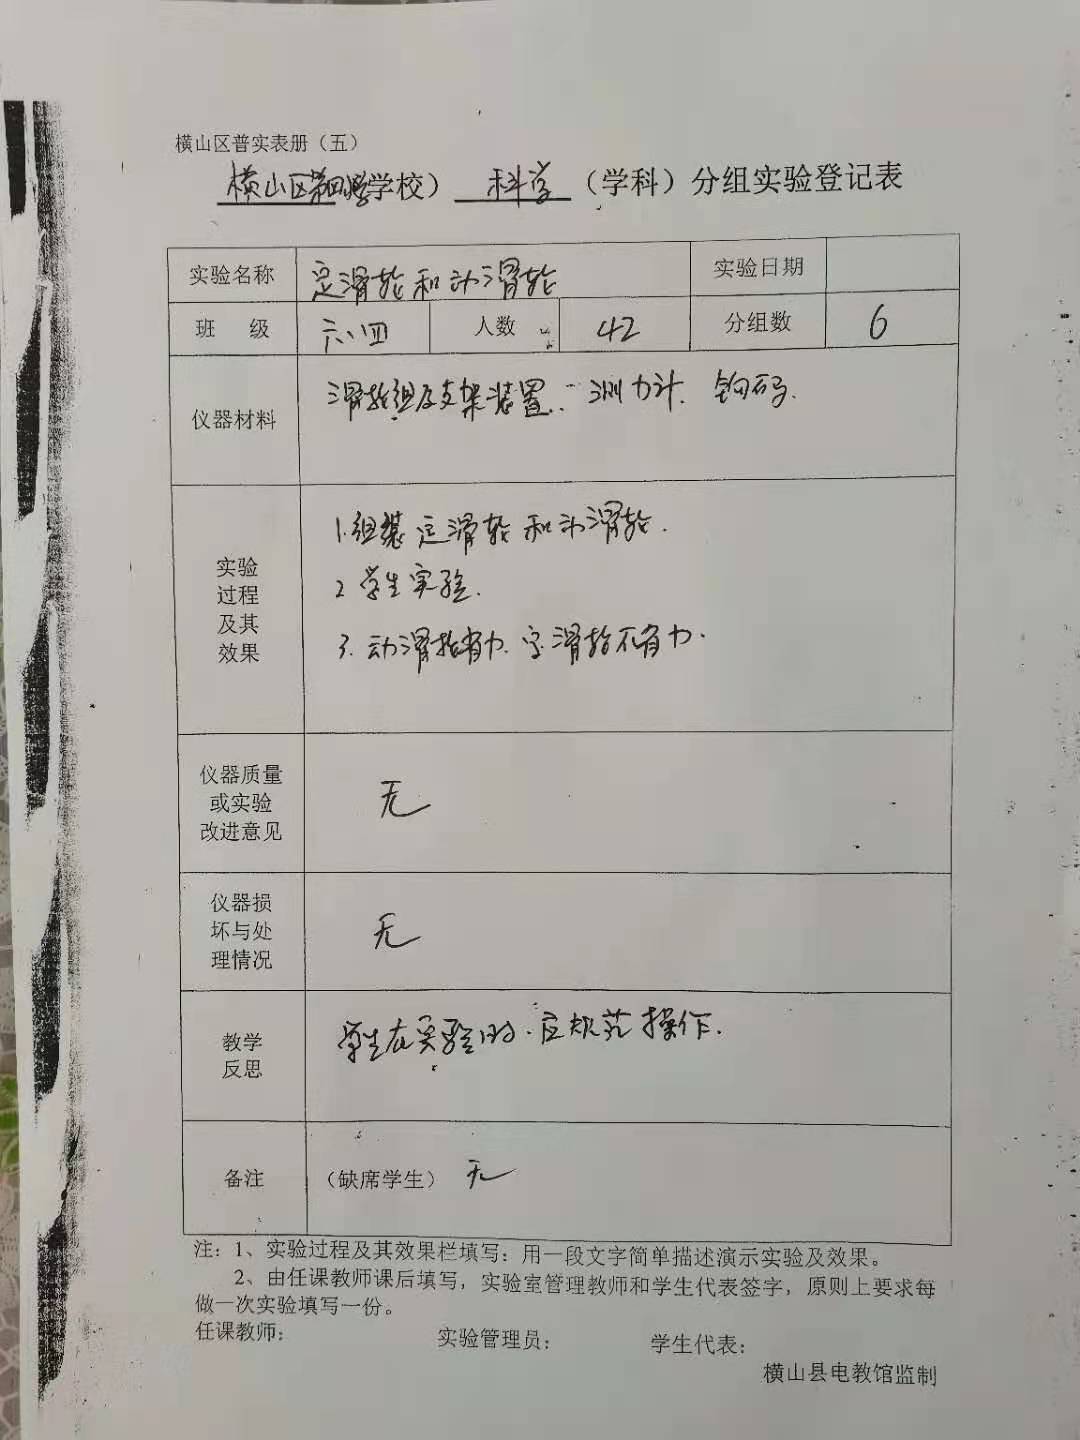 横山区普实表册（五）
横山区第四小学学校） 科学 （学科）分组实验登记表
实验名称 定滑轮和动滑轮 实验日期
班 级 六、四 人数 42 分组数 6
仪器材料 滑轮组及支架装置、测力计、钩码.
实验
过程
及其
效果
1.组装定滑轮和动滑轮.
2 学生实验.
3. 动滑轮省力、定滑轮不省力.
仪器质量
或实验
改进意见
无
仪器损
坏与处
理情况
无
教学
反思
学生在实验时.应规范操作.
备注 （缺席学生） 无
注：1、实验过程及其效果栏填写：用一段文字简单描述演示实验及效果。
2、由任课教师课后填写，实验室管理教师和学生代表签字，原则上要求每
做一次实验填写一份。
任课教师： 实验管理员： 学生代表：
横山县电教馆监制